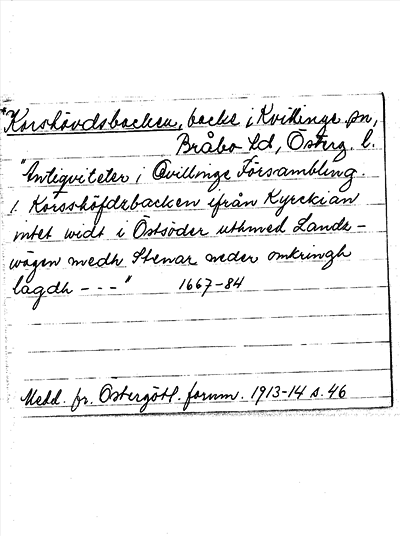 *Korshövdsbacken, backe i Kvillinge sn,
Bråbo hd, Österg. l.
"Antiqviteter i Qvillinge Försambling.
1. Korsshöfdzbacken ifrån Kyrckian
intet widt i Östsöder uthmed Landz-
wägen medh Stenar neder omkringh
lagdh - - -" 1667-84
Medd. fr. Östergötl. fornm. 1913-14 s. 46